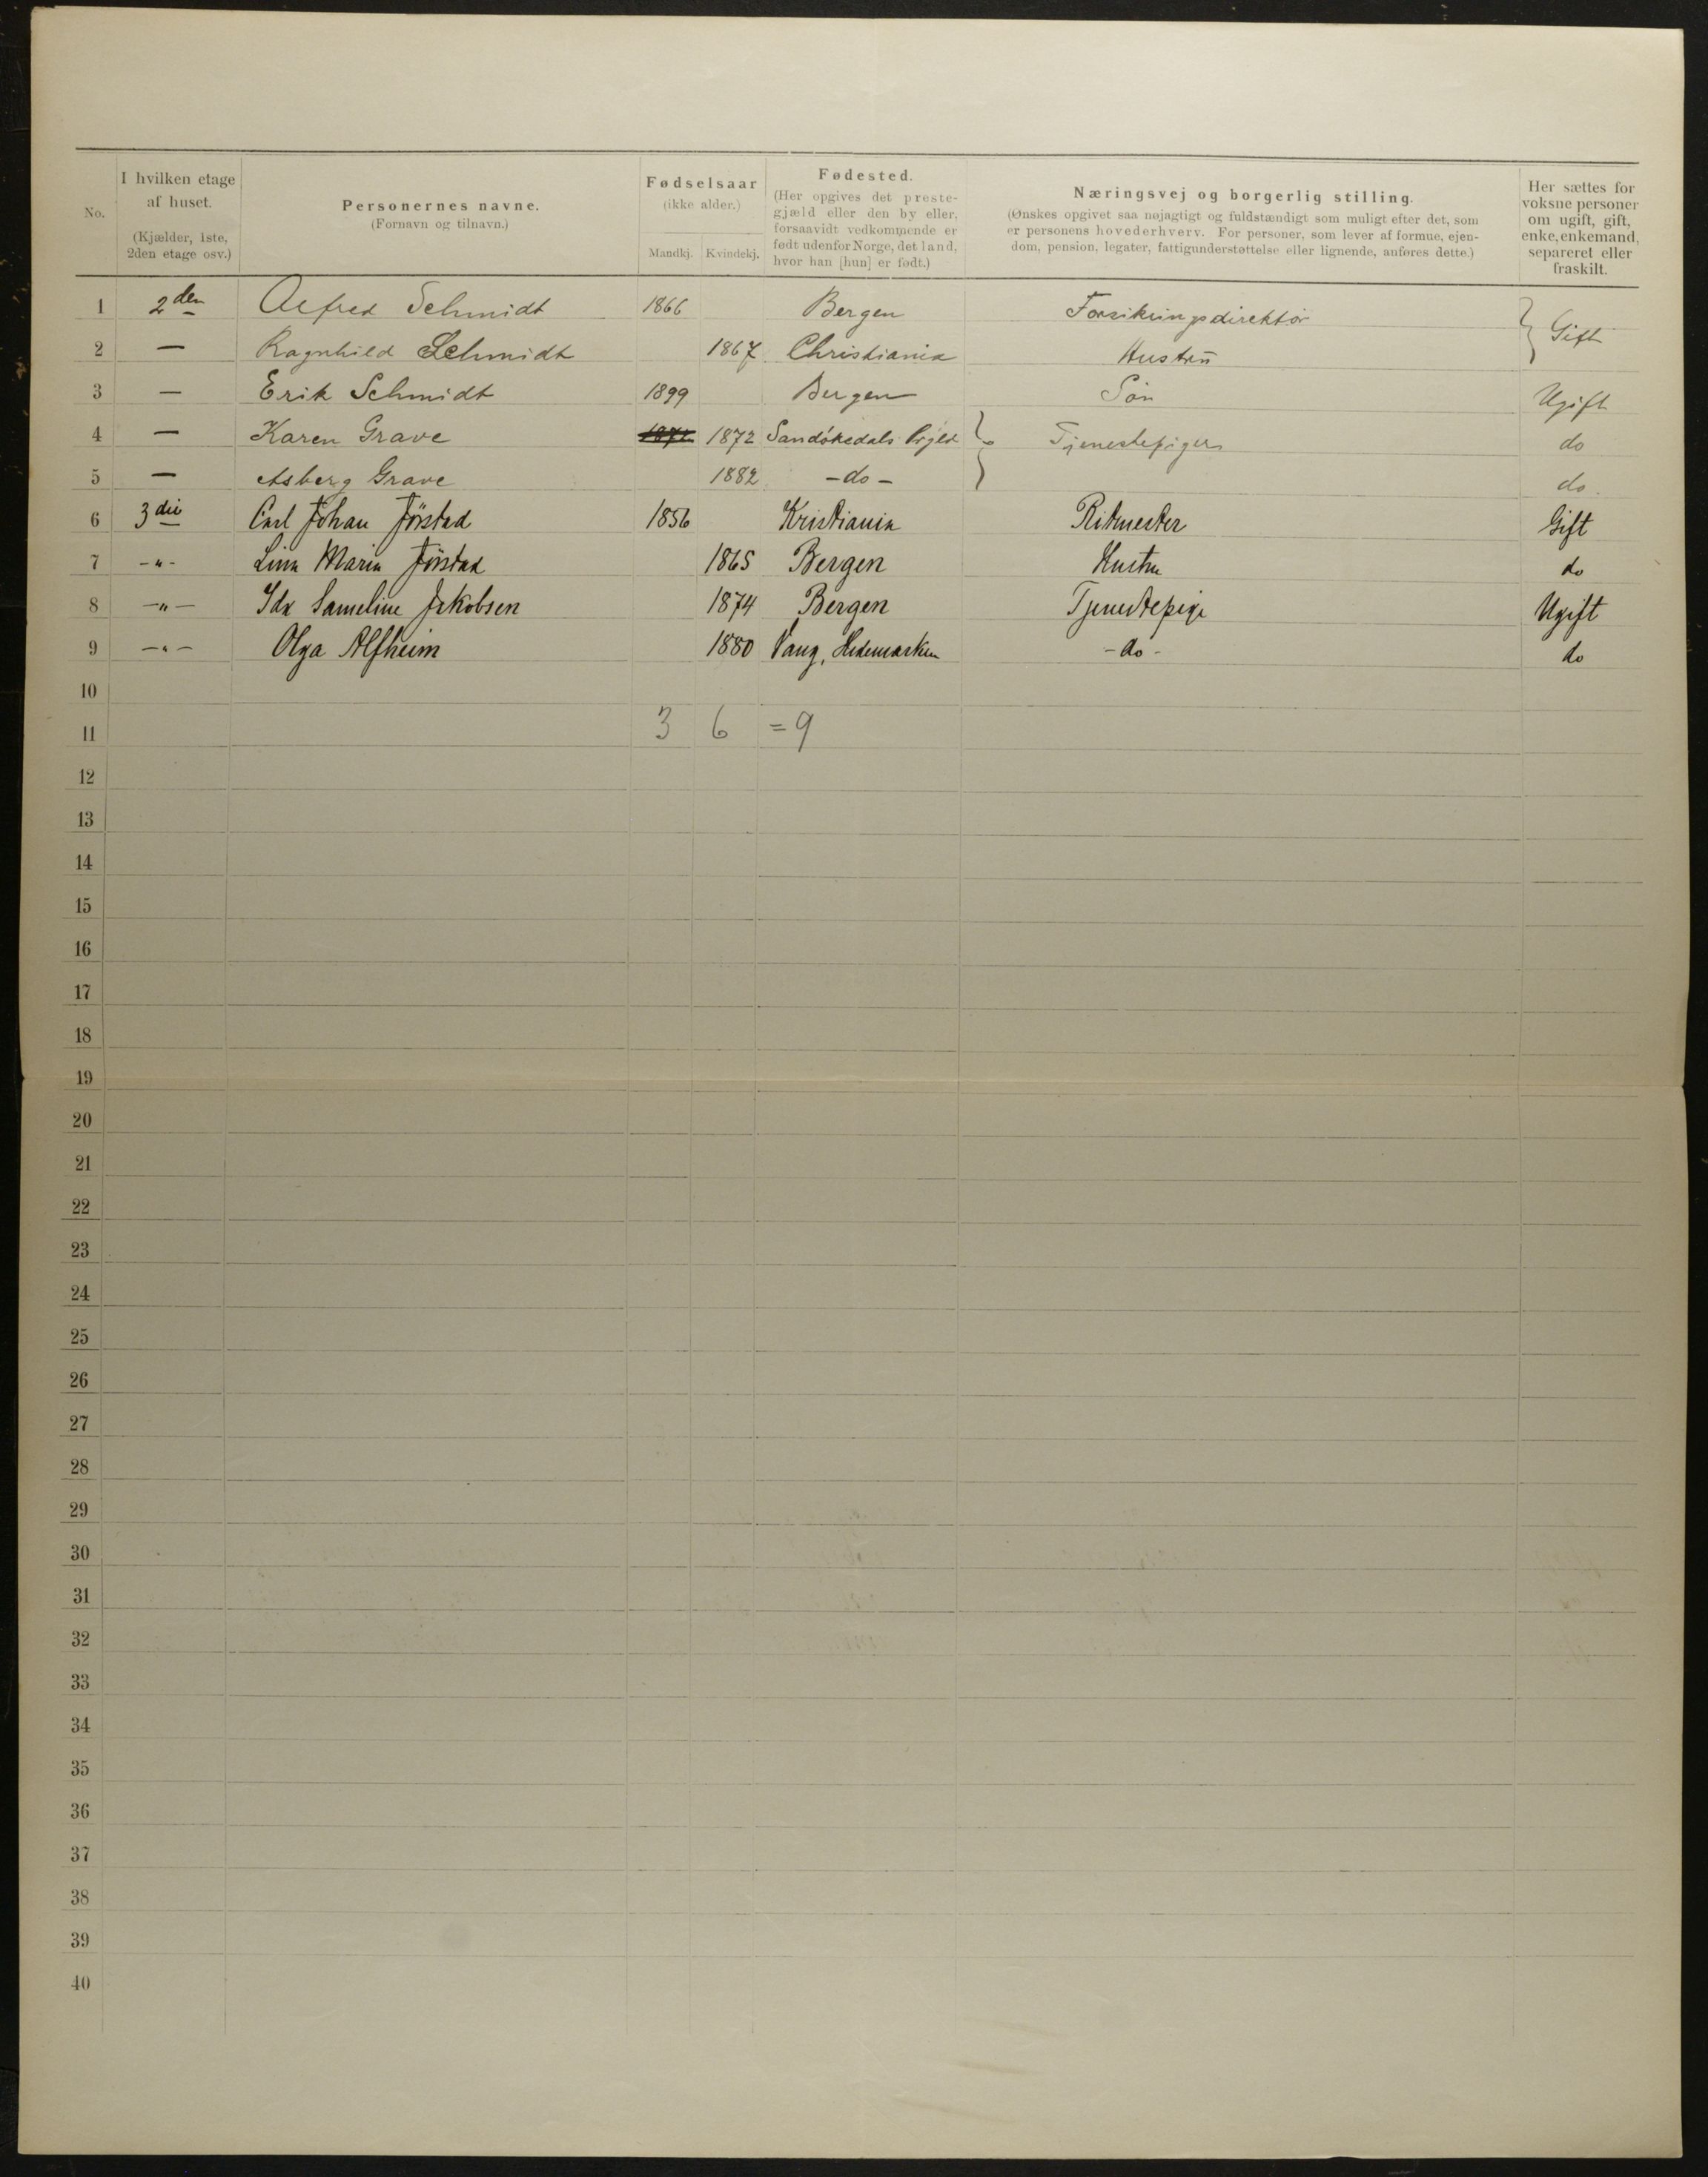 No.
I hvilken etage af huset.
(Kjælder, 1ste, 2den etage osv.)
Personernes navne.
(Fornavn og tilnavn.)
Fødselsaar
(ikke alder.)
Mandkj. Kvindekj.
Fødested.
(Her opgives det preste-
gjæld eller den by eller,
forsaavidt vedkommende er
født udenfor Norge, det land,
hvor han [hun] er født.)
Næringsvej og borgerlig stilling.
(Ønskes opgivet saa nøjagtigt og fuldstændigt som muligt efter det, som
er personens hovederhverv. For personer, som lever af formue, ejen-
dom, pension, legater, fattigunderstøttelse eller lignende, anføres dette.)
Her sættes for
voksne personer
om ugift, gift,
enke, enkemand,
separeret eller
fraskilt.
1 2den Alfred Schmidt 1866 Bergen Forsikringsdirektør } Gift
2 — Ragnhild Schmidt 1867 Christiania Hustru
3 — Erik Schmidt 1899 Bergen Søn Ugift
4 — Karen Grave 1872 1872 Sandökedals } Tjenestepiger do
5 — Asberg Grave 1882 -do- do.
6 3die Carl Johan Jörstad 1856 Kristiania Ritmester Gift
7 -"- Lina Maria Jörstad 1865 Bergen Hustru do
8 -"- Ida Sameline Jakobsen 1874 Bergen Tjenestepige Ugift
9 -"- Olga Alfheim 1880 Vang, Hedemarken -do- do
10
11 3 6 = 9
12
13
14
15
16
17
18
19
20
21
22
23
24
25
26
27
28
29
30
31
32
33
34
35
36
37
38
39
40